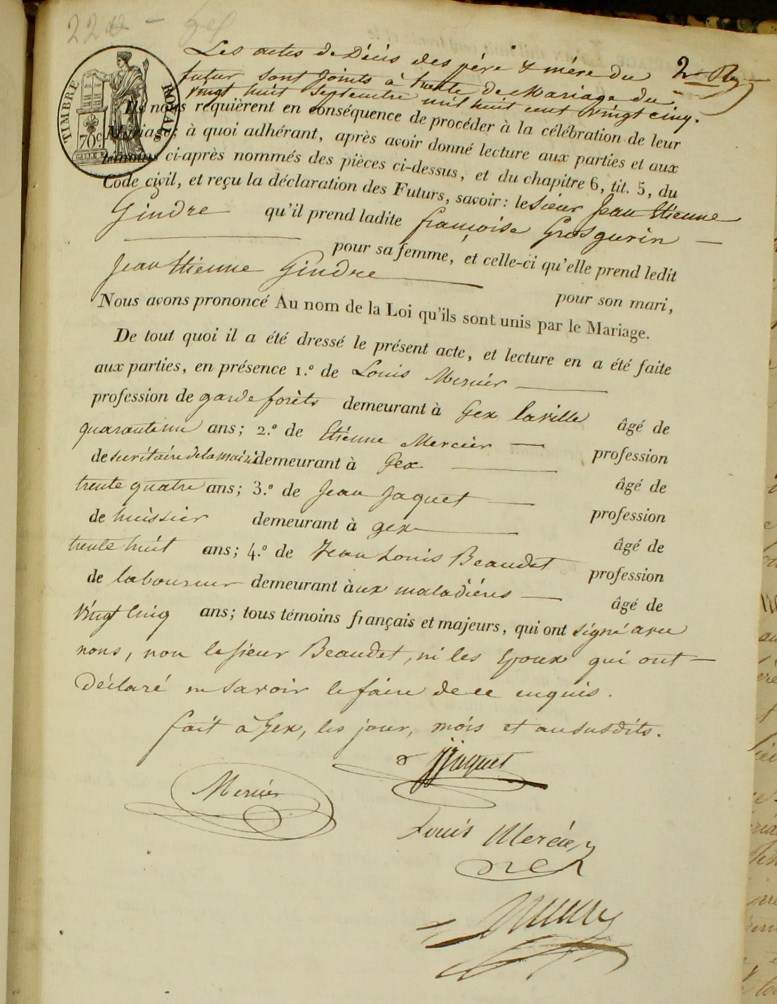 22
Les actes de Décès des père & mère du
futur sont joints à l'acte de Mariage du
vingt huit septembre mil huit cent vingt cinq.
TIMBRE ROYAL
70 c
De nous requièrent en conséquence de procéder à la célébration de leur
Mariage; à quoi adhérant, après avoir donné lecture aux parties et aux
témoins ci-après nommés des pièces ci-dessus, et du chapitre 6, tit. 5, du
Code civil, et reçu la déclaration des Futurs, savoir: le sieur Jean Etienne
Gindre qu'il prend ladite françoise Grosgurin
pour sa femme, et celle-ci qu'elle prend ledit
Jean Etienne Gindre pour son mari,
Nous avons prononcé Au nom de la Loi qu'ils sont unis par le Mariage.
De tout quoi il a été dressé le présent acte, et lecture en a été faite
aux parties, en présence 1.° de Louis Mercier
profession de garde forêts demeurant à Gex la ville âgé de
quarante un ans; 2.° de Etienne Mercier profession
de secrétaire de la mairie demeurant à Gex âgé de
trente quatre ans; 3.° de Jean Jaquet profession
de huissier demeurant à gex âgé de
trente huit ans; 4.° de Jean Louis Beaudet profession
de laboureur demeurant à aux maladières âgé de
vingt cinq ans; tous témoins français et majeurs, qui ont signé avec
nous, non le sieur Beaudet, ni les époux qui ont
Déclaré ne savoir le faire de ce enquis.
fait à Gex, les jour, mois et an susdits.
JJaquet
Mercier
Louis Mercier